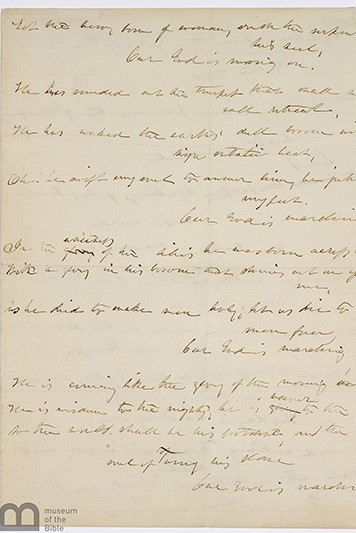 Let the hero, born of woman, crush the serpen
his heel,
Our God is moving on.
He has sounded out the trumpet that shall
call retreat,
He has waked the earth's dull bosom wi
ecstatic beat,
Oh! be swift my soul to answer him, be jub
my feet.
Our God is marchin
In the whiteness of the lilies he was born across
With a glory in his bosom that shines out on y
me,
As he died to make men holy, let us die to
men free,
Our God is marching
He is coming like the glory of the morning
He is wisdom to the mighty, he is succour to the
So the world shall be his footstool, and the
soul of Time his slave
Our God is marchin
museum
of the
Bible